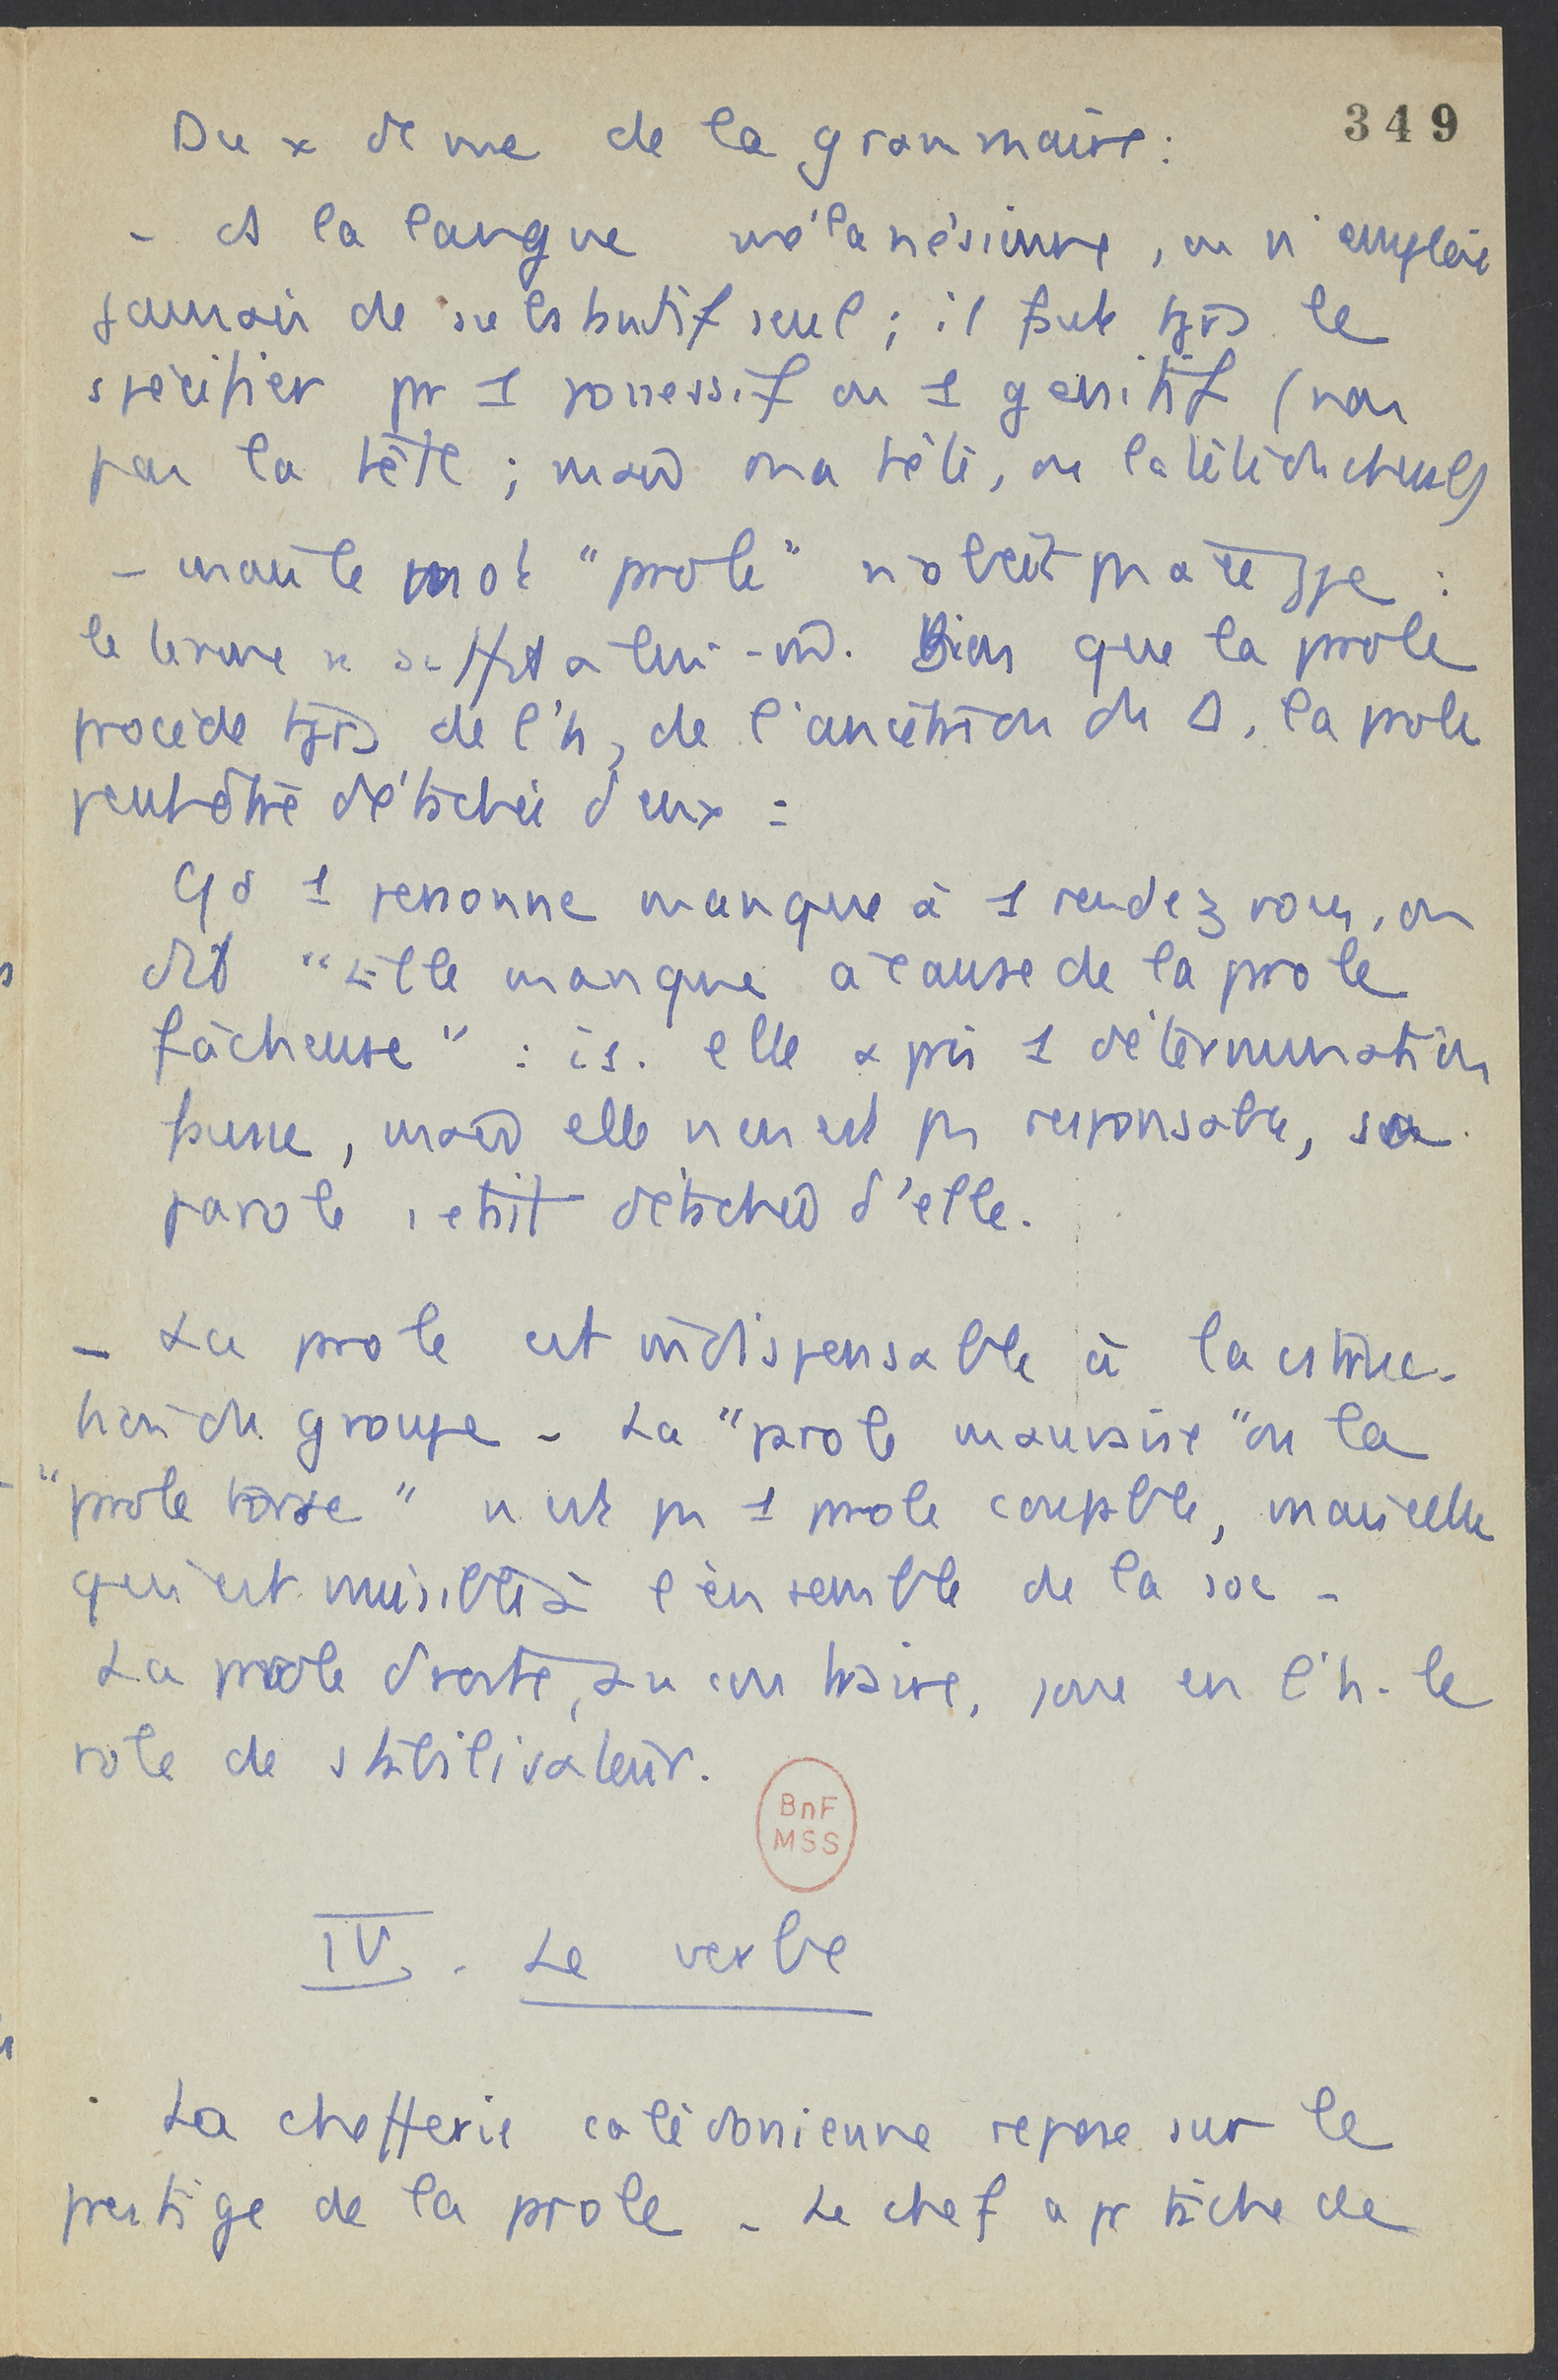 349
Du x de vue de la grammaire :
- ds la langue mélanésienne, on n'emploie
jamais de substantif seul ; il faut tjrs le
spécifier pr 1 possessif ou 1 génitif (non
pas la tête ; mais ma tête, ou la tête du cheval)
- mais le mot "parole" n'obéit pas à ce type :
le terme se suffit à lui-m̂. Bien que la parole
procède tjrs de l'h, de l'ancêtre ou du Δ, la parole
peut être détachée d'eux :
Qd 1 personne manque à 1 rendez vous, on
dit "Elle manque à cause de la parole
fâcheuse" : i.e. elle a pris 1 détermination
fausse, mais elle n'en est pas responsable, sa
parole s'était détachée d'elle.
- La parole est indispensable à la struc-
tion du groupe - La "parole mauvaise" ou la
"parole torse" n'est pas 1 parole coupable, mais celle
qui est nuisible à l'ensemble de la soc -
La parole droite, au contraire, joue en l'h. le
rôle de stabilisateur.
BnF
MSS
IV. Le verbe
La chefferie calédonienne repose sur le
prestige de la parole - Le chef a pr tâche de